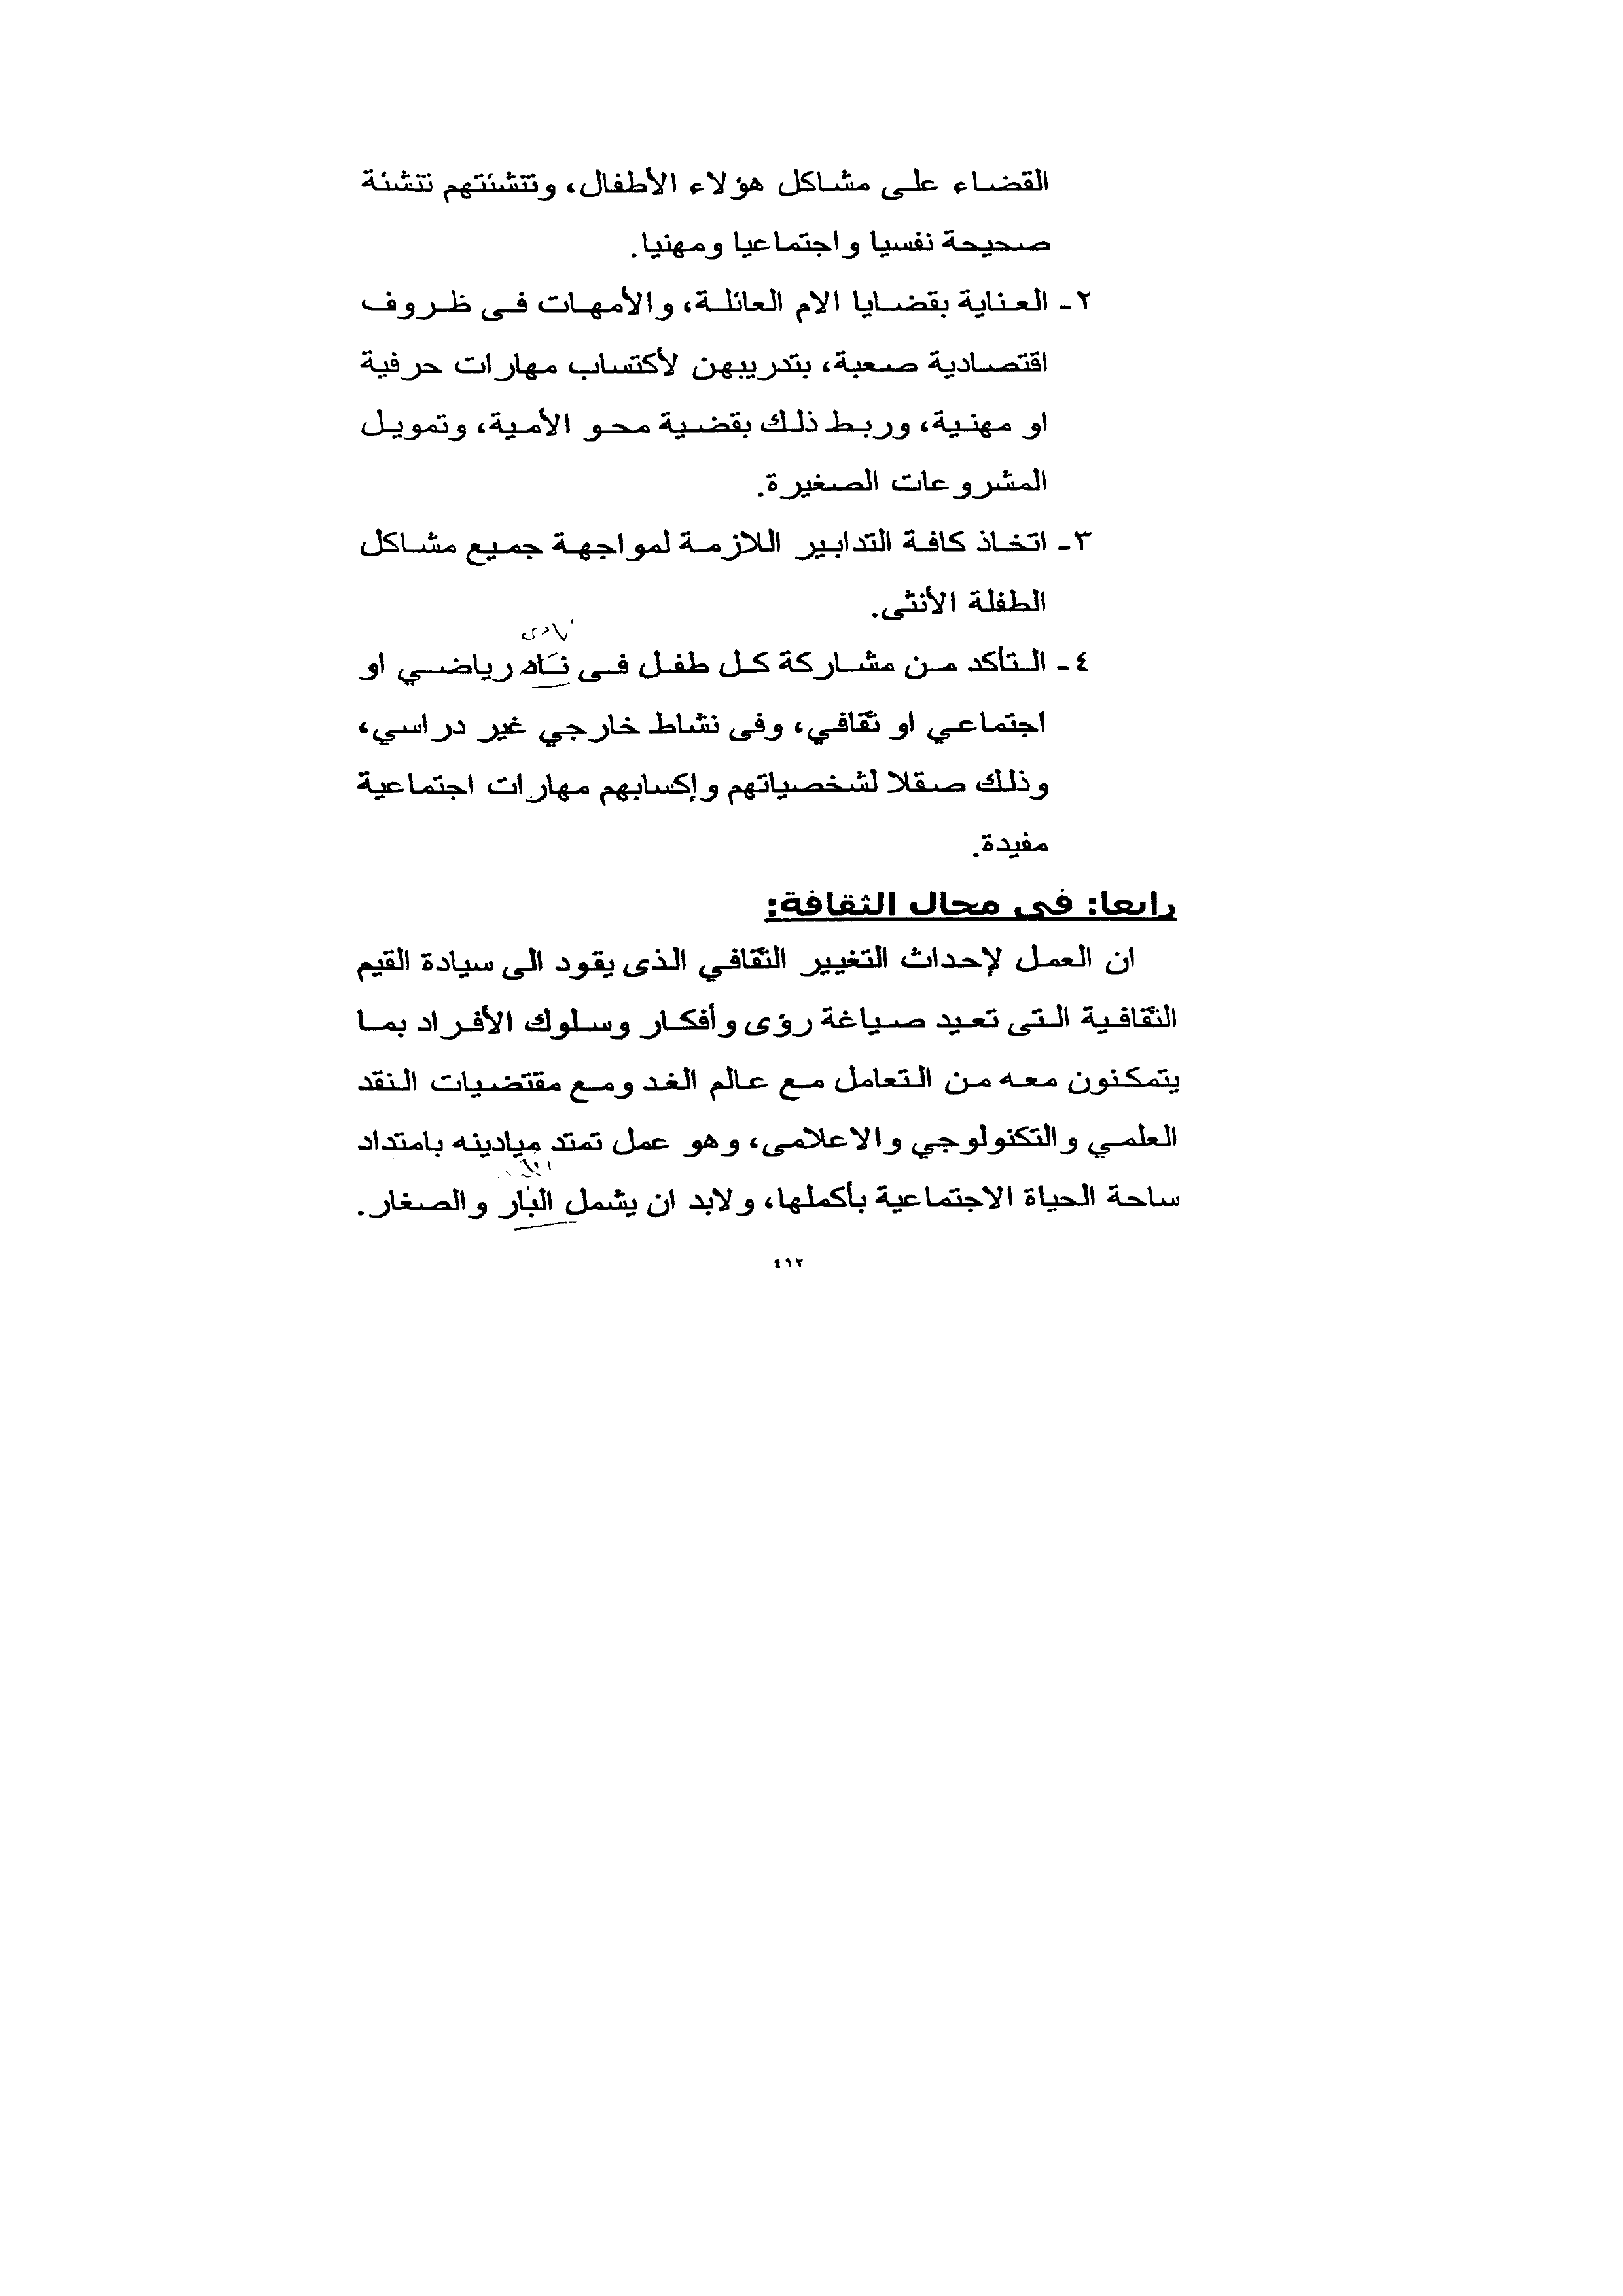 القضاء على مشاكل هؤلاء الأطفال، وتنشئتهم تنشئة
صحيحة نفسيا واجتماعيا ومهنيا.
٢- العناية بقضايا الام العائلة، والأمهات فى ظروف
اقتصادية صعبة، بتدريبهن لأكتساب مهارات حرفية
او مهنية، وربط ذلك بقضية محو الأمية، وتمويل
المشروعات الصغيرة.
٣- اتخاذ كافة التدابير اللازمة لمواجهة جميع مشاكل
الطفلة الأنثى.
نادى
٤- التأكد من مشاركة كل طفل فى ناد رياضي او
اجتماعي او ثقافي، وفى نشاط خارجي غير دراسي،
وذلك صقلا لشخصياتهم وإكسابهم مهارات اجتماعية
مفيدة.
رابعا: فى مجال الثقافة:
ان العمل لإحداث التغيير الثقافي الذى يقود الى سيادة القيم
الثقافية التى تعيد صياغة رؤى وأفكار وسلوك الأفراد بما
يتمكنون معه من التعامل مع عالم الغد ومع مقتضيات النقد
العلمي والتكنولوجي والاعلامى، وهو عمل تمتد ميادينه بامتداد
ساحة الحياة الاجتماعية بأكملها، ولابد ان يشمل البار والصغار.
٤١٢